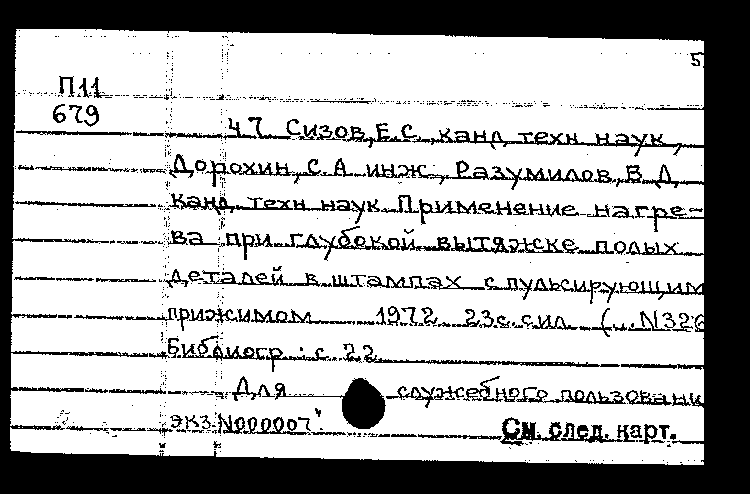 5
П11
679
47 Сизов, Е.С., канд. техн. наук,
Дорохин, С.А. инж., Разумилов, В.Д.
канд. техн. наук. Применение нагре-
ва при глубокой вытяжке полых
деталей в штампах с пульсирующим
прижимом 1972 23с. с ил. (...N326
Библиогр.: с. 22
Для служебного пользовани
экз. N000007"
См. след. карт.